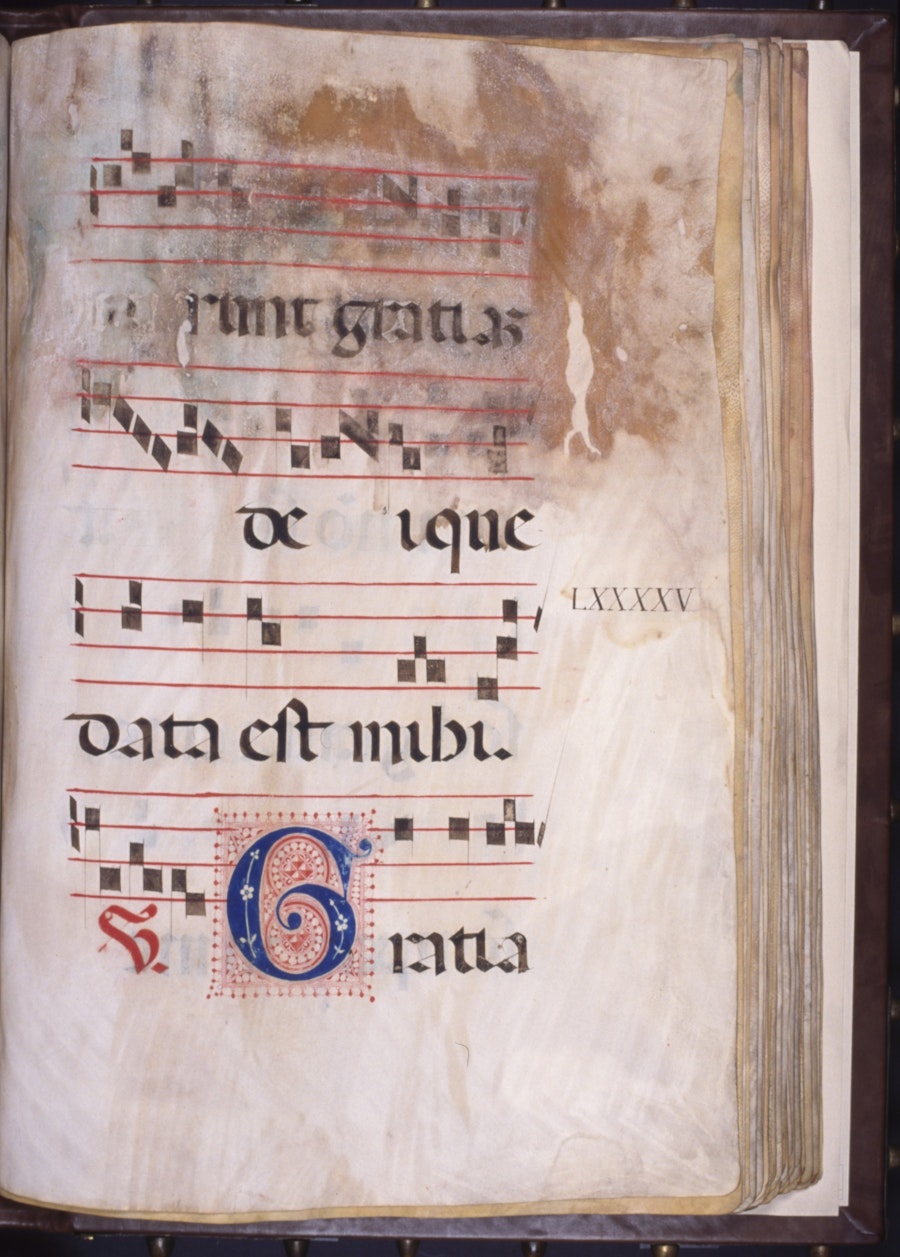 runt gratiaʒ
de ique
LXXXXV
data est mihi.
V. Gratia